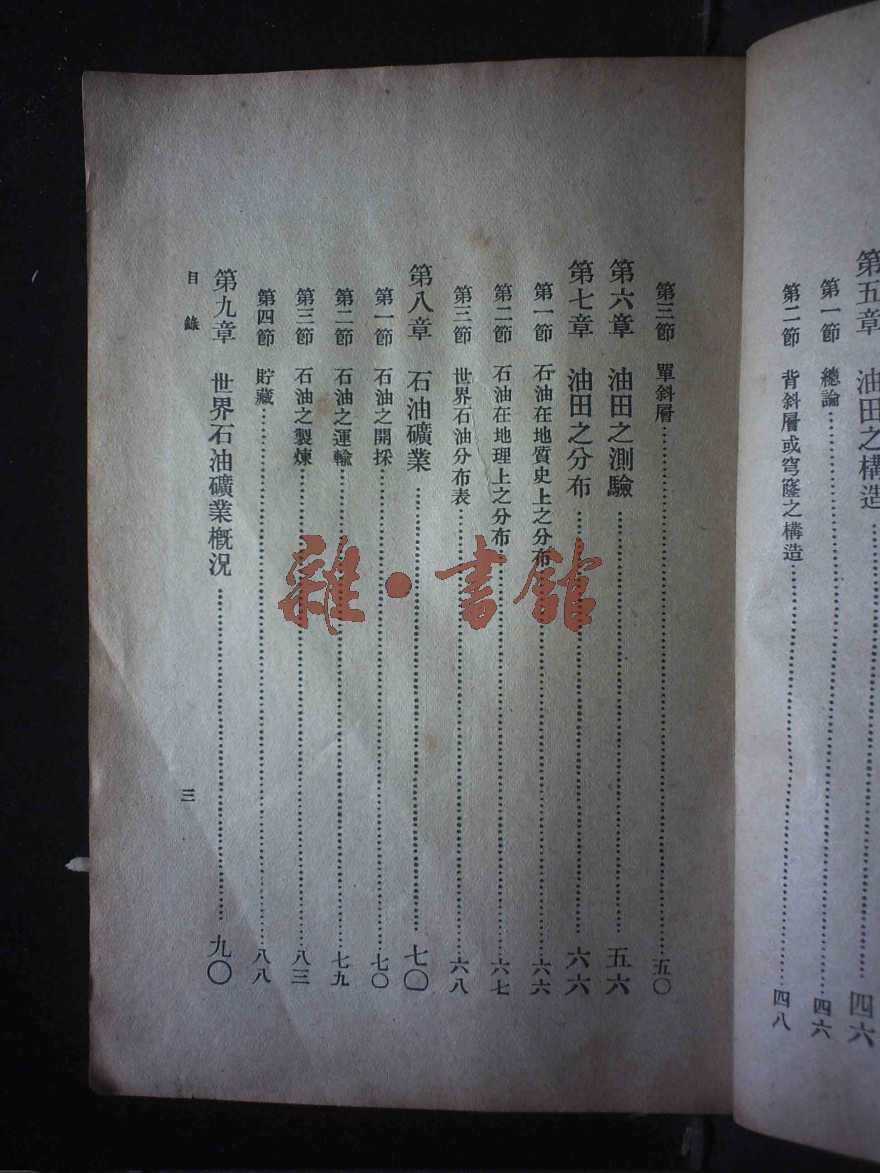 第五章 油田之構造……四六
第一節 總論……四六
第二節 背斜層或穹窿之構造……四八
第三節 單斜層……五〇
第六章 油田之測驗……五六
第七章 油田之分布……六六
第一節 石油在地質史上之分布……六六
第二節 石油在地理上之分布……六七
第三節 世界石油分布表……六八
第八章 石油礦業……七〇
第一節 石油之開採……七〇
第二節 石油之運輸……七九
第三節 石油之製煉……八三
第四節 貯藏……八八
第九章 世界石油礦業概況……九〇
目錄
三
雜·書館